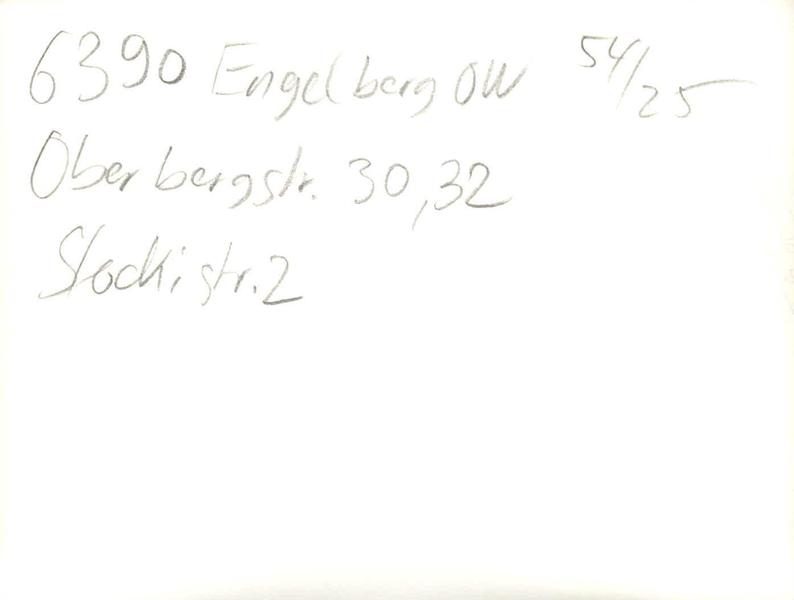 6390 Engelberg OW 54/25
Oberbergstr. 30,32
Stockistr. 2